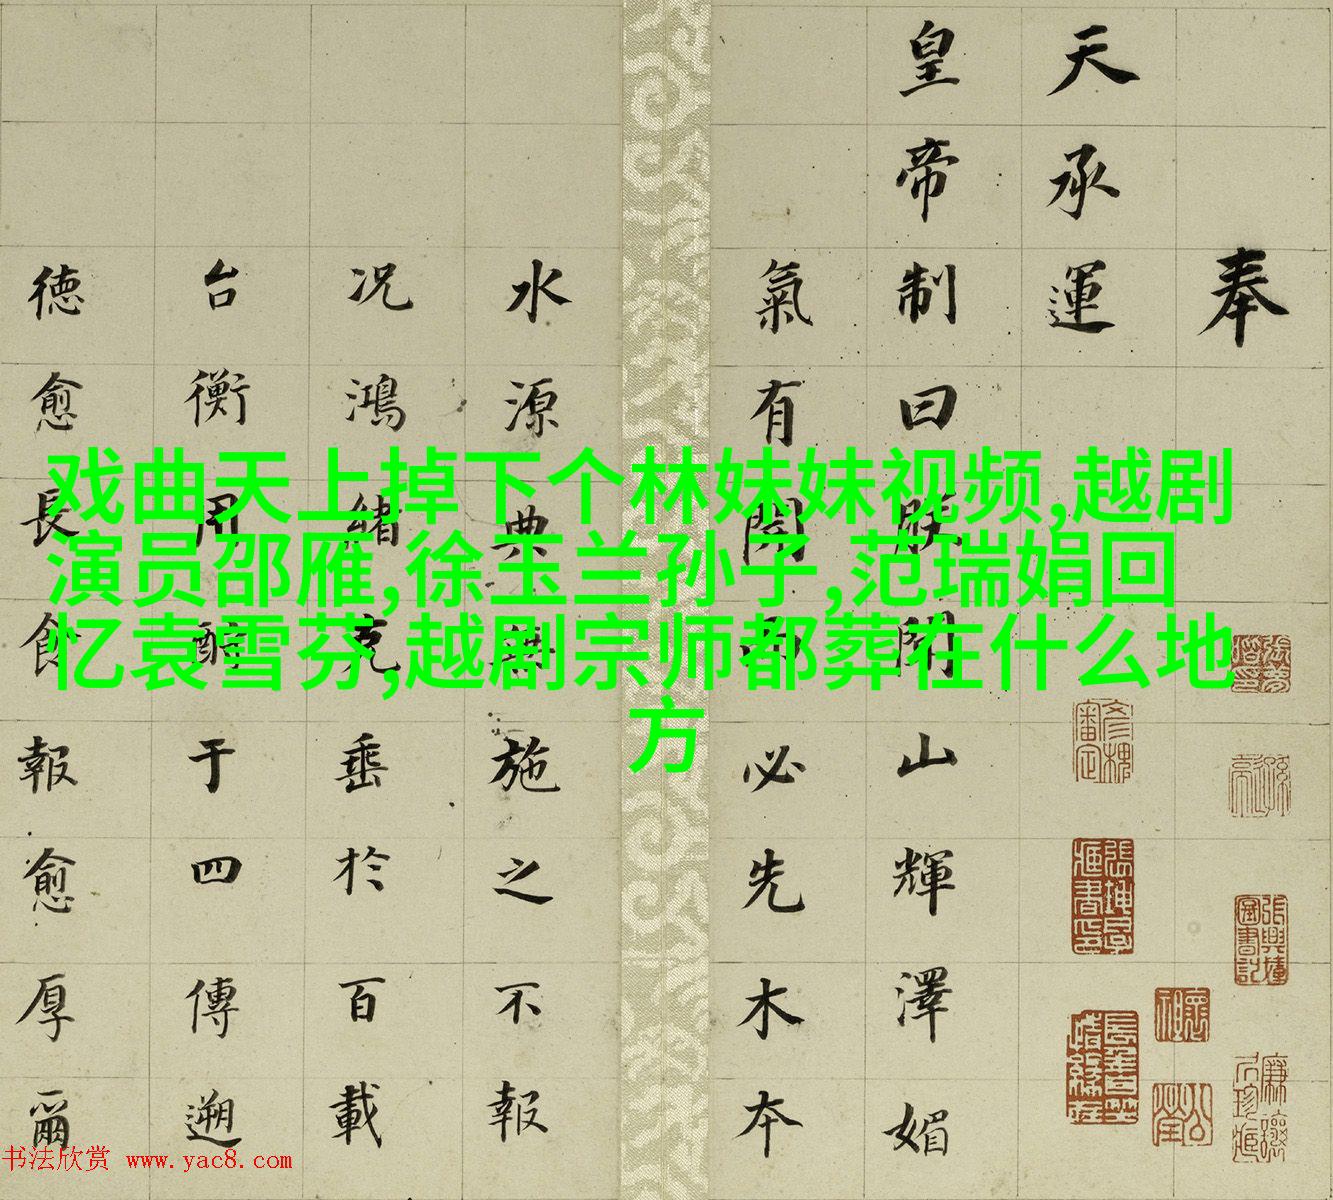 奉
天承運
皇帝制曰朕聞山輝澤媚
氣有開必先木本
水源典無施之不報
况鴻緒克垂於百載
台衡用酬于四傳遡
德愈長食報愈厚爾
戏曲天上掉下个林妹妹视频,越剧
演员邵雁,徐玉兰孙子,范瑞娟回
忆袁雪芬,越剧宗师都葬在什么地
方
书法欣赏 www.yac8.com